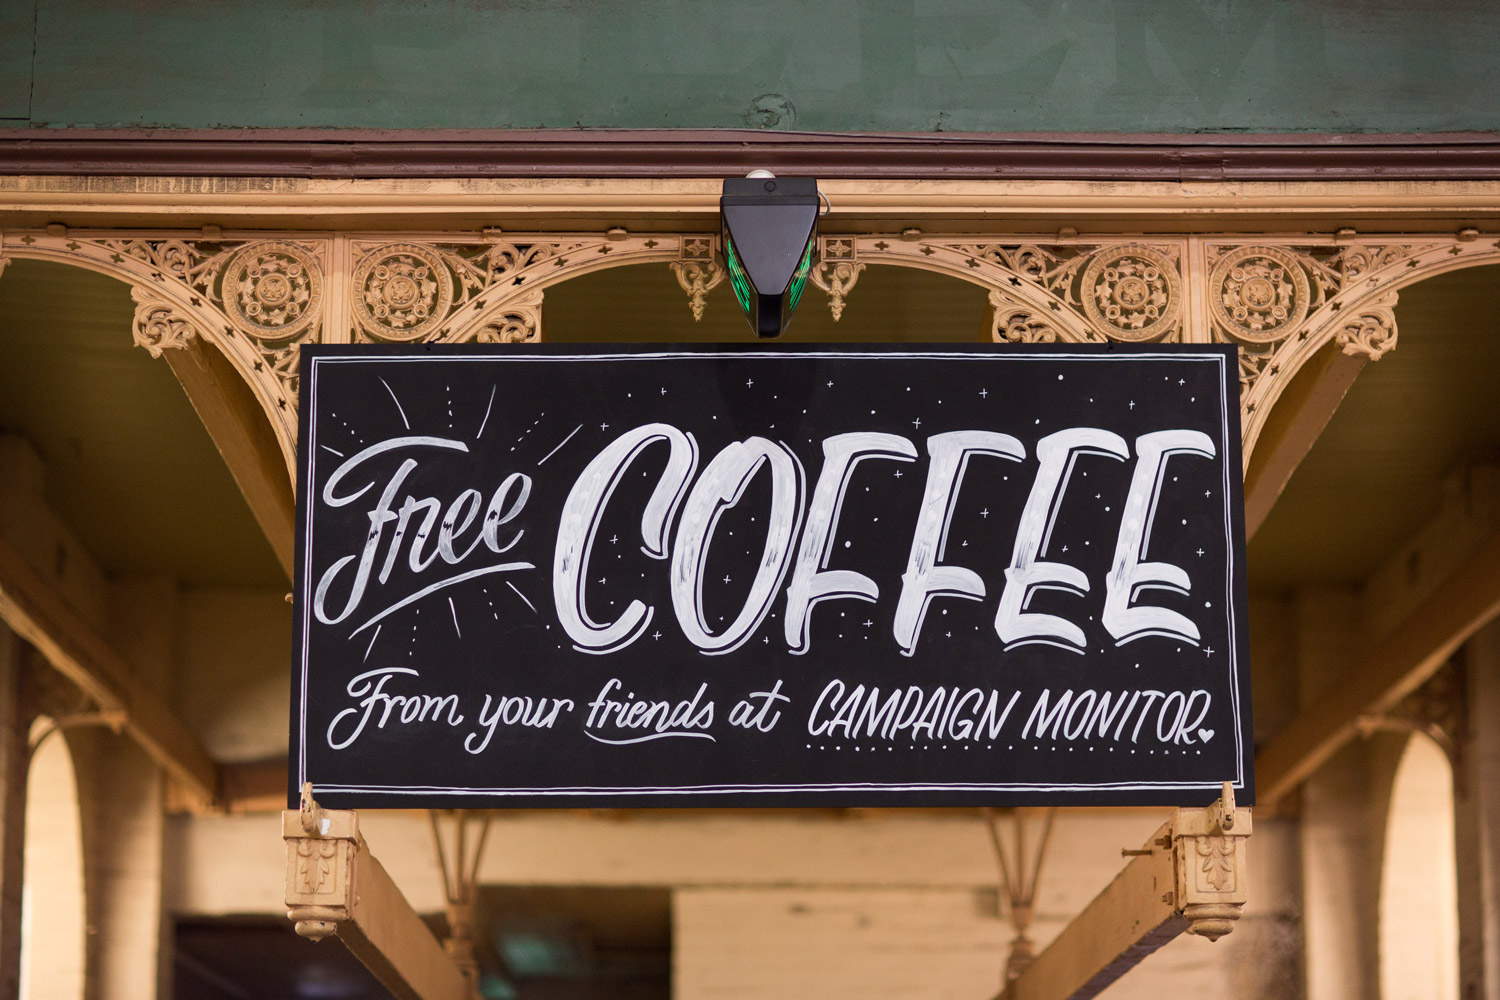 Free COFFEE
From your friends at CAMPAIGN MONITOR